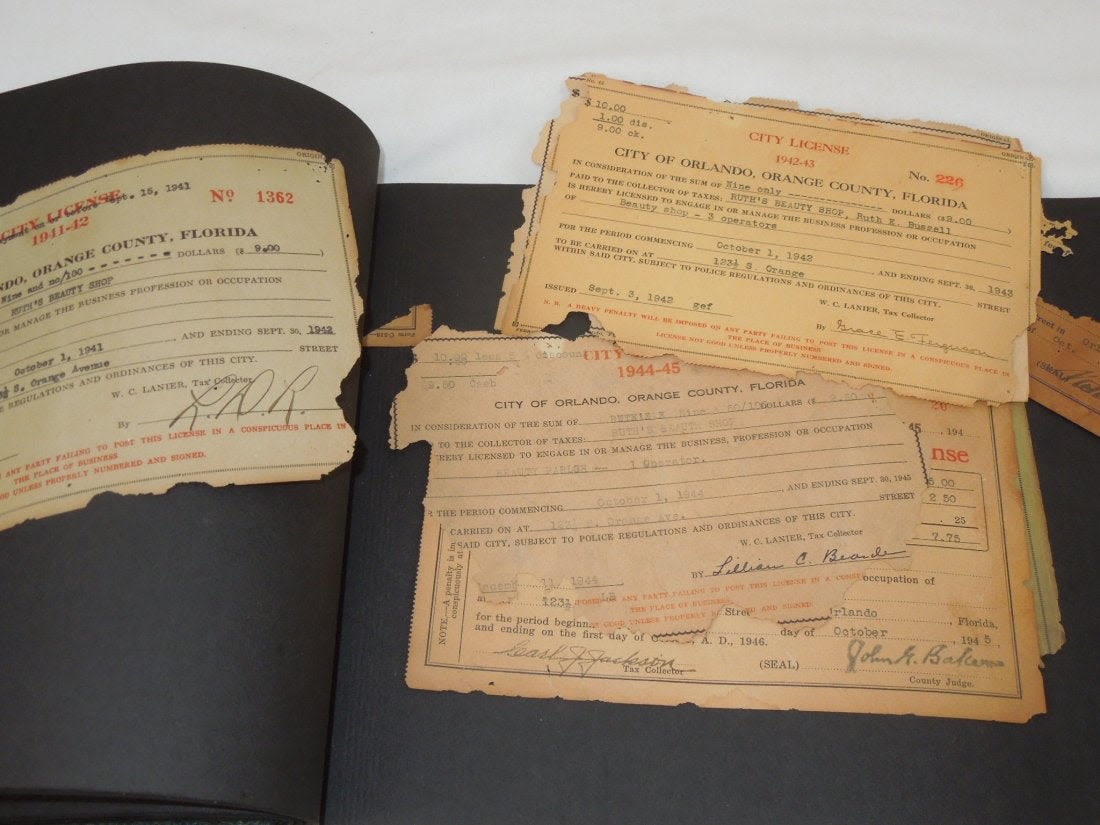 ORIGIN
Sept. 15, 1941
CITY LICENSE
1941-42
No 1362
ORANGE COUNTY, FLORIDA
Nine and no/100 - - - - - - - DOLLARS ($ 9.00
RUTH'S BEAUTY SHOP
OR MANAGE THE BUSINESS PROFESSION OR OCCUPATION
AND ENDING SEPT. 30, 1942
October 1, 1941
STREET
S. Orange Avenue
REGULATIONS AND ORDINANCES OF THIS CITY.
W. C. LANIER, Tax Collector
By L.D.R.
ANY PARTY FAILING TO POST THIS LICENSE IN A CONSPICUOUS PLACE IN
THE PLACE OF BUSINESS
GOOD UNLESS PROPERLY NUMBERED AND SIGNED.
$ $ 10.00
1.00 dis.
9.00 ck.
ORIGINAL
CITY LICENSE
1942-43
No. 226
CITY OF ORLANDO, ORANGE COUNTY, FLORIDA
IN CONSIDERATION OF THE SUM OF Nine only - - - - - - - - DOLLARS ($9.00 )
PAID TO THE COLLECTOR OF TAXES: RUTH'S BEAUTY SHOP, Ruth E. Bussell
IS HEREBY LICENSED TO ENGAGE IN OR MANAGE THE BUSINESS PROFESSION OR OCCUPATION
OF Beauty shop - 3 operators
FOR THE PERIOD COMMENCING October 1, 1942 , AND ENDING SEPT. 30, 1943
TO BE CARRIED ON AT 123½ S Orange STREET
WITHIN SAID CITY, SUBJECT TO POLICE REGULATIONS AND ORDINANCES OF THIS CITY.
W. C. LANIER, Tax Collector
ISSUED Sept. 3, 1942 gef
By Grace E Ferguson
N. B. A HEAVY PENALTY WILL BE IMPOSED ON ANY PARTY FAILING TO POST THIS LICENSE IN A CONSPICUOUS PLACE IN
THE PLACE OF BUSINESS
LICENSE NOT GOOD UNLESS PROPERLY NUMBERED AND SIGNED.
Form
(SEAL)
10.00 less
CITY
1944-45
CITY OF ORLANDO, ORANGE COUNTY, FLORIDA
IN CONSIDERATION OF THE SUM OF DOLLARS (
TO THE COLLECTOR OF TAXES: RUTH'S BEAUTY SHOP
HEREBY LICENSED TO ENGAGE IN OR MANAGE THE BUSINESS, PROFESSION OR OCCUPATION
BEAUTY PARLOR -- 1 Operator.
THE PERIOD COMMENCING October 1, 1944 , AND ENDING SEPT. 30, 1945
CARRIED ON AT S. Orange Ave. STREET
SAID CITY, SUBJECT TO POLICE REGULATIONS AND ORDINANCES OF THIS CITY.
W. C. LANIER, Tax Collector
BY Lillian C. Bearde
11/ 1944
ANY PARTY FAILING TO POST THIS LICENSE IN A
THE PLACE OF BUSINESS
GOOD UNLESS PROPERLY AND SIGNED
194
5.00
2 50
25
7.75
NOTE—A penalty is im
conspicuously at
occupation of
123½ Street Orlando Florida,
for the period beginn day of October , 1945
and ending on the first day of A. D., 1946.
Tax Collector
(SEAL)
John G. Baker
County Judge.